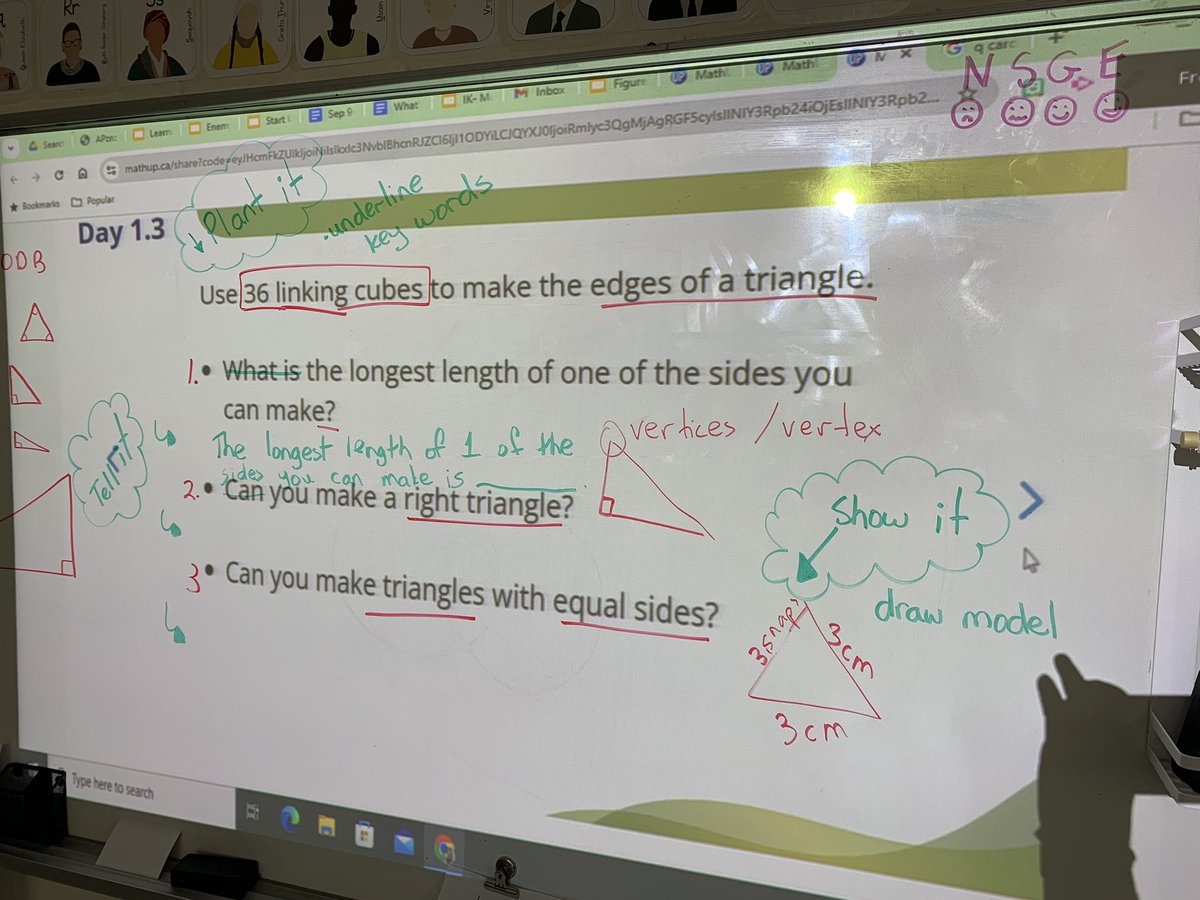 Rr
Ss
Ruth Bader Ginsburg
Sequoyah
Greta Thun
N S G E
Learn
Enem
Start L
Sep 9
What
IK- M
Inbox
Figure
Math
Math
q carc
Fr
mathup.ca/share?code=
Bookmarks
Popular
Day 1.3
Plant it
. underline
key words
ODB
Use 36 linking cubes to make the edges of a triangle.
1. • What is the longest length of one of the sides you
can make?
Tell it
The longest length of 1 of the
sides you can make is ______.
vertices / vertex
2. • Can you make a right triangle?
Show it
3 • Can you make triangles with equal sides?
draw model
3 snap
3 cm
3 cm
Type here to search